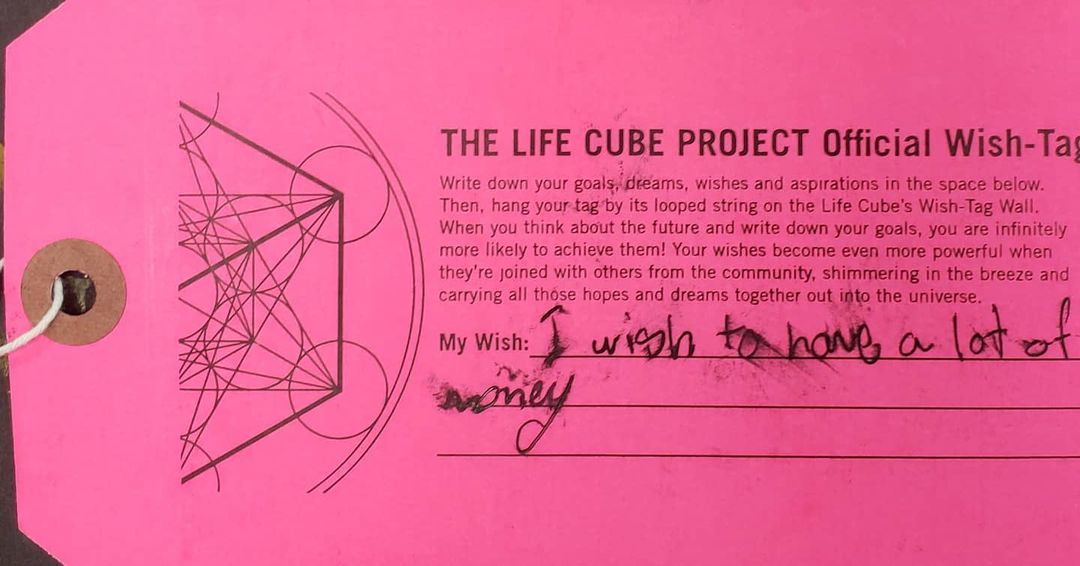 THE LIFE CUBE PROJECT Official Wish-Tag
Write down your goals, dreams, wishes and aspirations in the space below.
Then, hang your tag by its looped string on the Life Cube's Wish-Tag Wall.
When you think about the future and write down your goals, you are infinitely
more likely to achieve them! Your wishes become even more powerful when
they're joined with others from the community, shimmering in the breeze and
carrying all those hopes and dreams together out into the universe.
My Wish: I wish to have a lot of
money